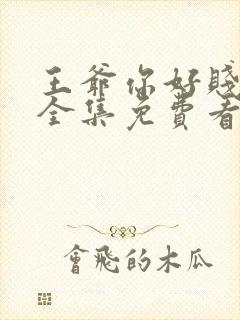 王爺你好賤
全集免費看
會飛的木瓜